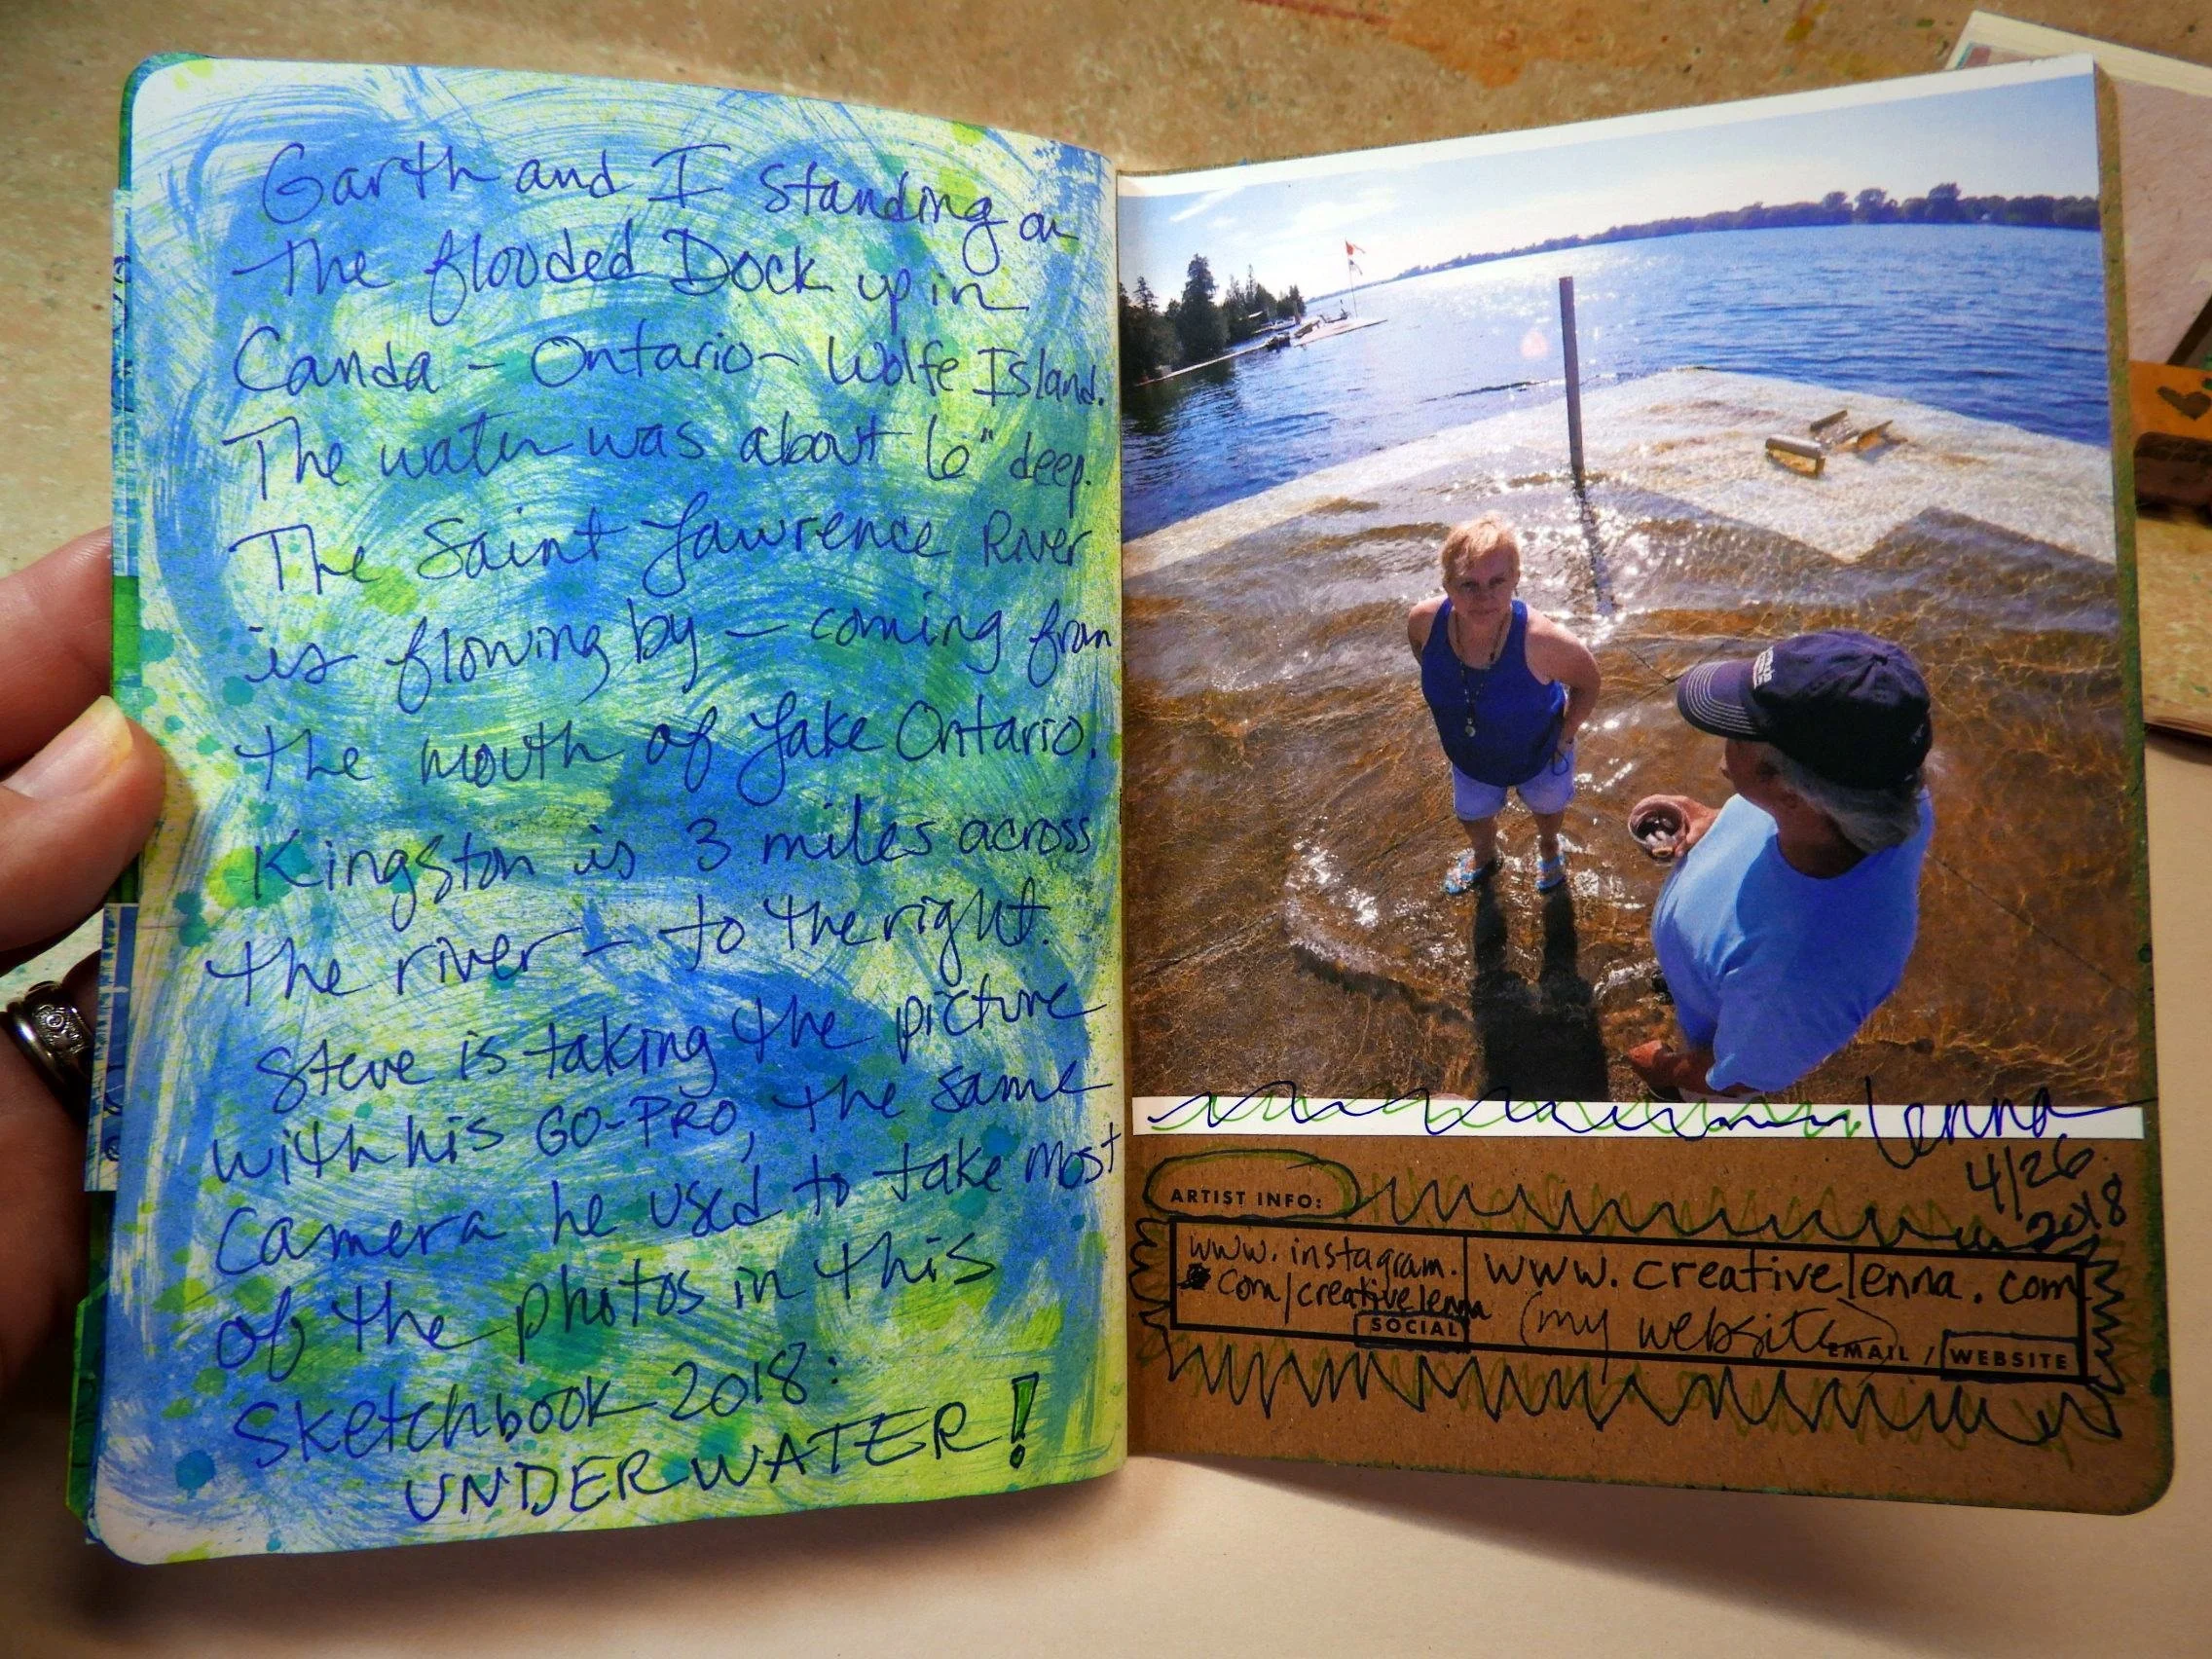 Garth and I standing on
the flooded Dock up in
Canda - Ontario - Wolfe Island.
The water was about 6" deep.
The Saint Lawrence River
is flowing by - coming from
the mouth of Lake Ontario.
Kingston is 3 miles across
the river - to the right.
Steve is taking the picture
with his GO-PRO, the same
camera he used to take most
of the photos in this
Sketchbook 2018:
UNDERWATER!
lenna
4/26
2018
ARTIST INFO:
www.instagram.
com/creativelenna
SOCIAL
www.creativelenna.com
(my website)
EMAIL / WEBSITE